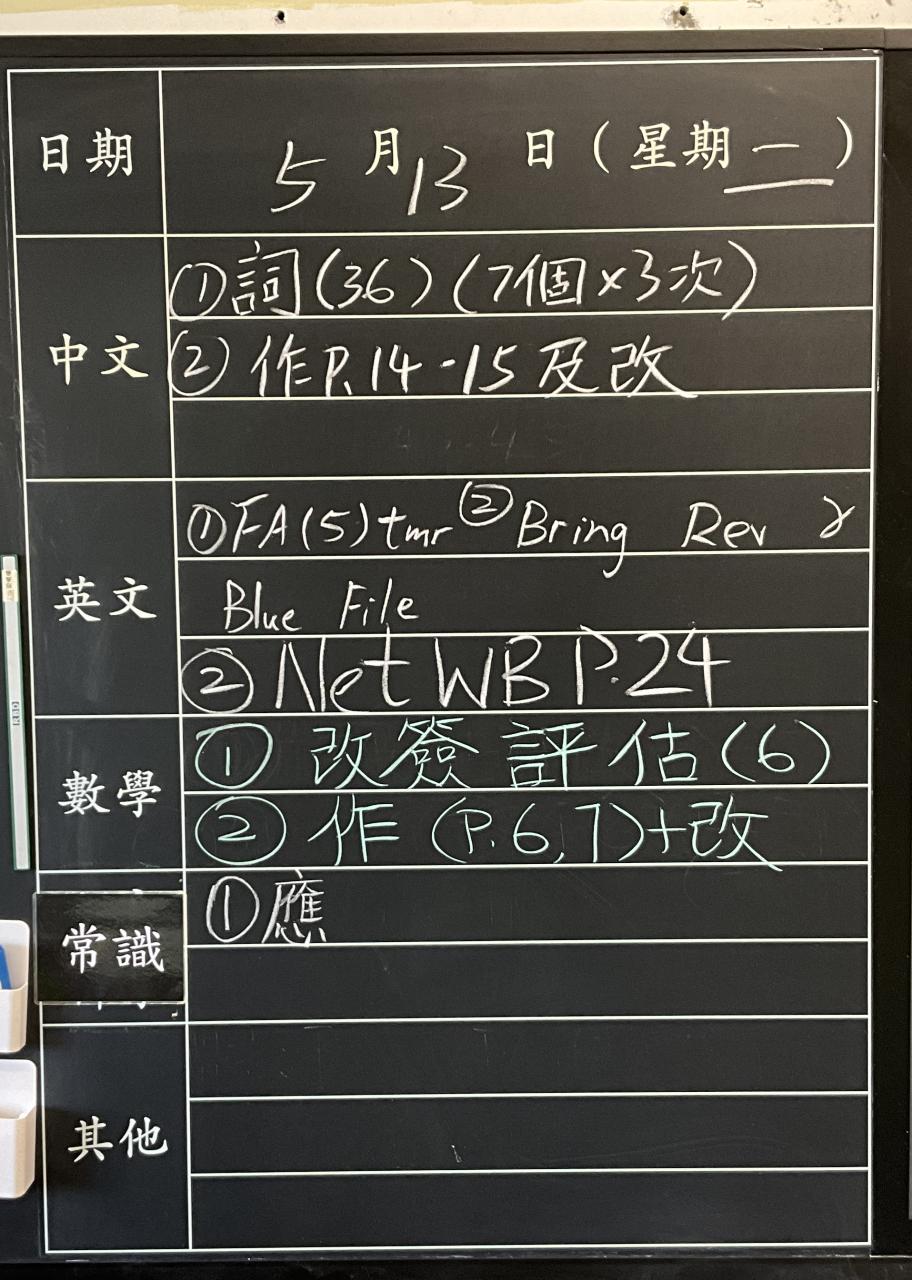 日期 5月13日(星期二)
中文
①詞(36)(7個×3次)
②作P.14-15及改
英文
①FA(5)tmr ②Bring Rev &
Blue File
②Net WB P.24
數學
①改簽評估(6)
②作(P.6,7)+改
常識
①應
其他